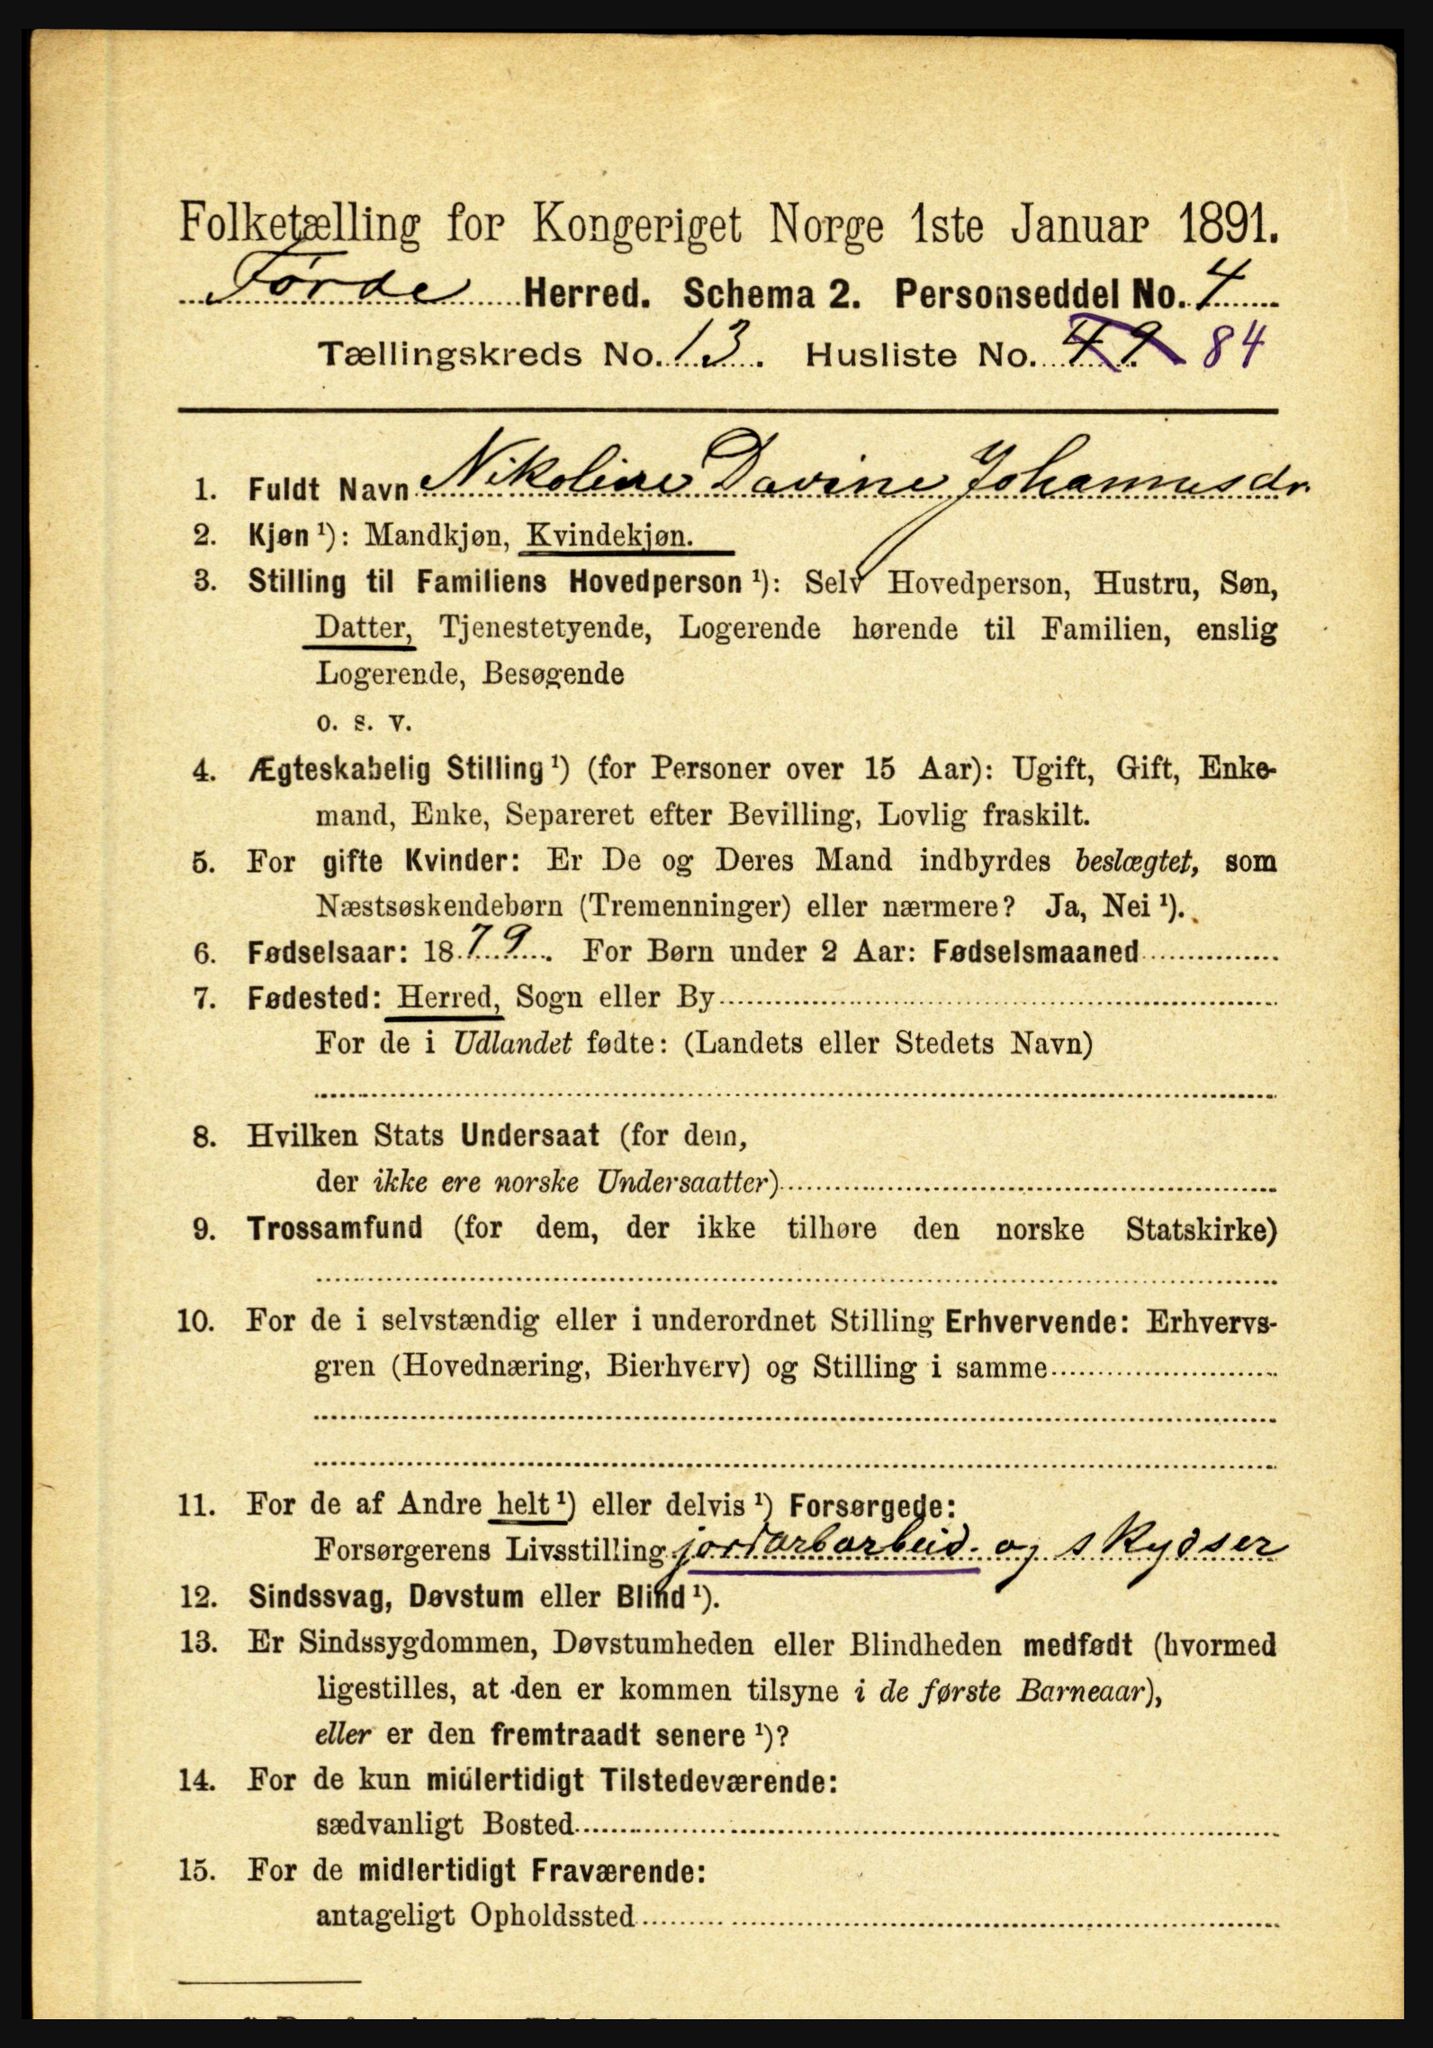 Folketælling for Kongeriget Norge 1ste Januar 1891.
Førde Herred. Schema 2. Personseddel No. 4
Tællingskreds No. 13. Husliste No. 49 84
1. Fuldt Navn Nikoline Davine Johannesdr.
2. Kjøn ¹): Mandkjøn, Kvindekjøn.
3. Stilling til Familiens Hovedperson ¹): Selv Hovedperson, Hustru, Søn,
Datter, Tjenestetyende, Logerende hørende til Familien, enslig
Logerende, Besøgende
o. s. v.
4. Ægteskabelig Stilling ¹) (for Personer over 15 Aar): Ugift, Gift, Enke-
mand, Enke, Separeret efter Bevilling, Lovlig fraskilt.
5. For gifte Kvinder: Er De og Deres Mand indbyrdes beslægtet, som
Næstsøskendebørn (Tremenninger) eller nærmere? Ja, Nei ¹).
6. Fødselsaar: 1879. For Børn under 2 Aar: Fødselsmaaned
7. Fødested: Herred, Sogn eller By
For de i Udlandet fødte: (Landets eller Stedets Navn)
8. Hvilken Stats Undersaat (for dem,
der ikke ere norske Undersaatter)
9. Trossamfund (for dem, der ikke tilhøre den norske Statskirke)
10. For de i selvstændig eller i underordnet Stilling Erhvervende: Erhvervs-
gren (Hovednæring, Bierhverv) og Stilling i samme
11. For de af Andre helt ¹) eller delvis ¹) Forsørgede:
Forsørgerens Livsstilling jordarbarbeid. og skydser
12. Sindssvag, Døvstum eller Blind ¹).
13. Er Sindssygdommen, Døvstumheden eller Blindheden medfødt (hvormed
ligestilles, at den er kommen tilsyne i de første Barneaar),
eller er den fremtraadt senere ¹)?
14. For de kun midlertidigt Tilstedeværende:
sædvanligt Bosted
15. For de midlertidigt Fraværende:
antageligt Opholdssted